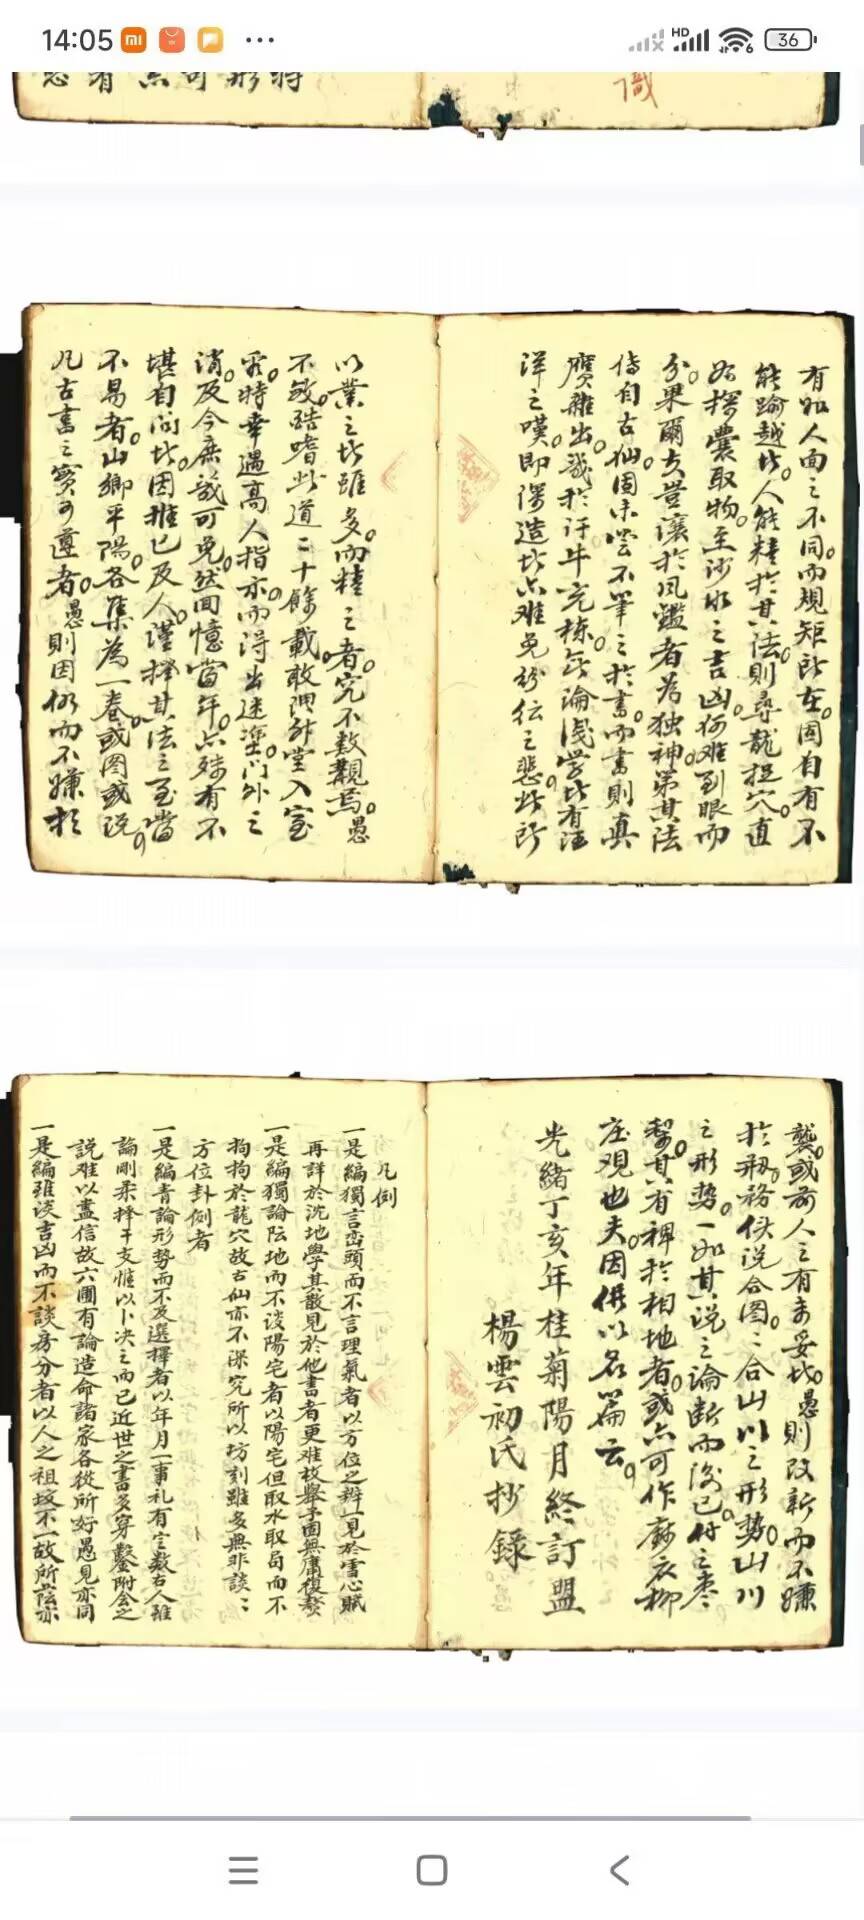 14:05
HD
6
36
有如人面之不同而規矩所在固自有不
能踰越此人能精於其法則尋龍捉穴直
如探囊取物至沙水之吉凶何难到眼而
分果爾夫豈讓於風鑑者為独神第其法
傳自古仙固未尝不筆之於書而書則真
贋雜出幾於汗牛充棟
洋之嘆即
以業之 雖多而精之者究不数覯焉愚
不敏酷嗜此道二十餘載敢謂升堂入室
時幸遇高人指示而得出迷塗門外之
誚及今庶幾可免然回憶當年亦殊有不
堪自問 因推己及人謹擇其法之至當
不易者山鄉平陽各集為一卷或图或说
凡古書之寶可遵者愚則因仍而不嫌於
襲或前人之有未妥 愚則改新而不嫌
於 務使说合图二合山川之形勢山川
之形势一如其说之論断而後已付之枣
梨其有裨於相地者或亦可作麻衣柳
庄观也夫因 以名篇云
光緒丁亥年桂菊陽月終訂盟
楊雲初氏抄錄
凡例
一是編獨言巒頭而不言理氣者以方位之辨一見於雪心賦
再詳於沈地學其散見於他書者更难枚舉予固無庸復贅
一是編獨論阴地而不谈陽宅者以陽宅但取水取局而不
拘拘於龍穴故古仙亦不深究所以坊刻雖多無非談二
方位卦例者
一是編耑論形勢而不及選擇者以年月一事礼有定数古人雖
論剛柔擇干支惟以卜决之而已近世之書多穿鑿附会之
説难以盡信故六圃有論造命諸家各從所好愚見亦同
一是編雖谈吉凶而不談房分者以人之祖坟不一故所蔭亦